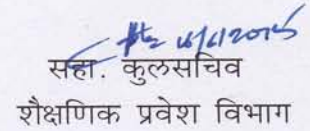 16/6/2015
सहा. कुलसचिव
शैक्षणिक प्रवेश विभाग